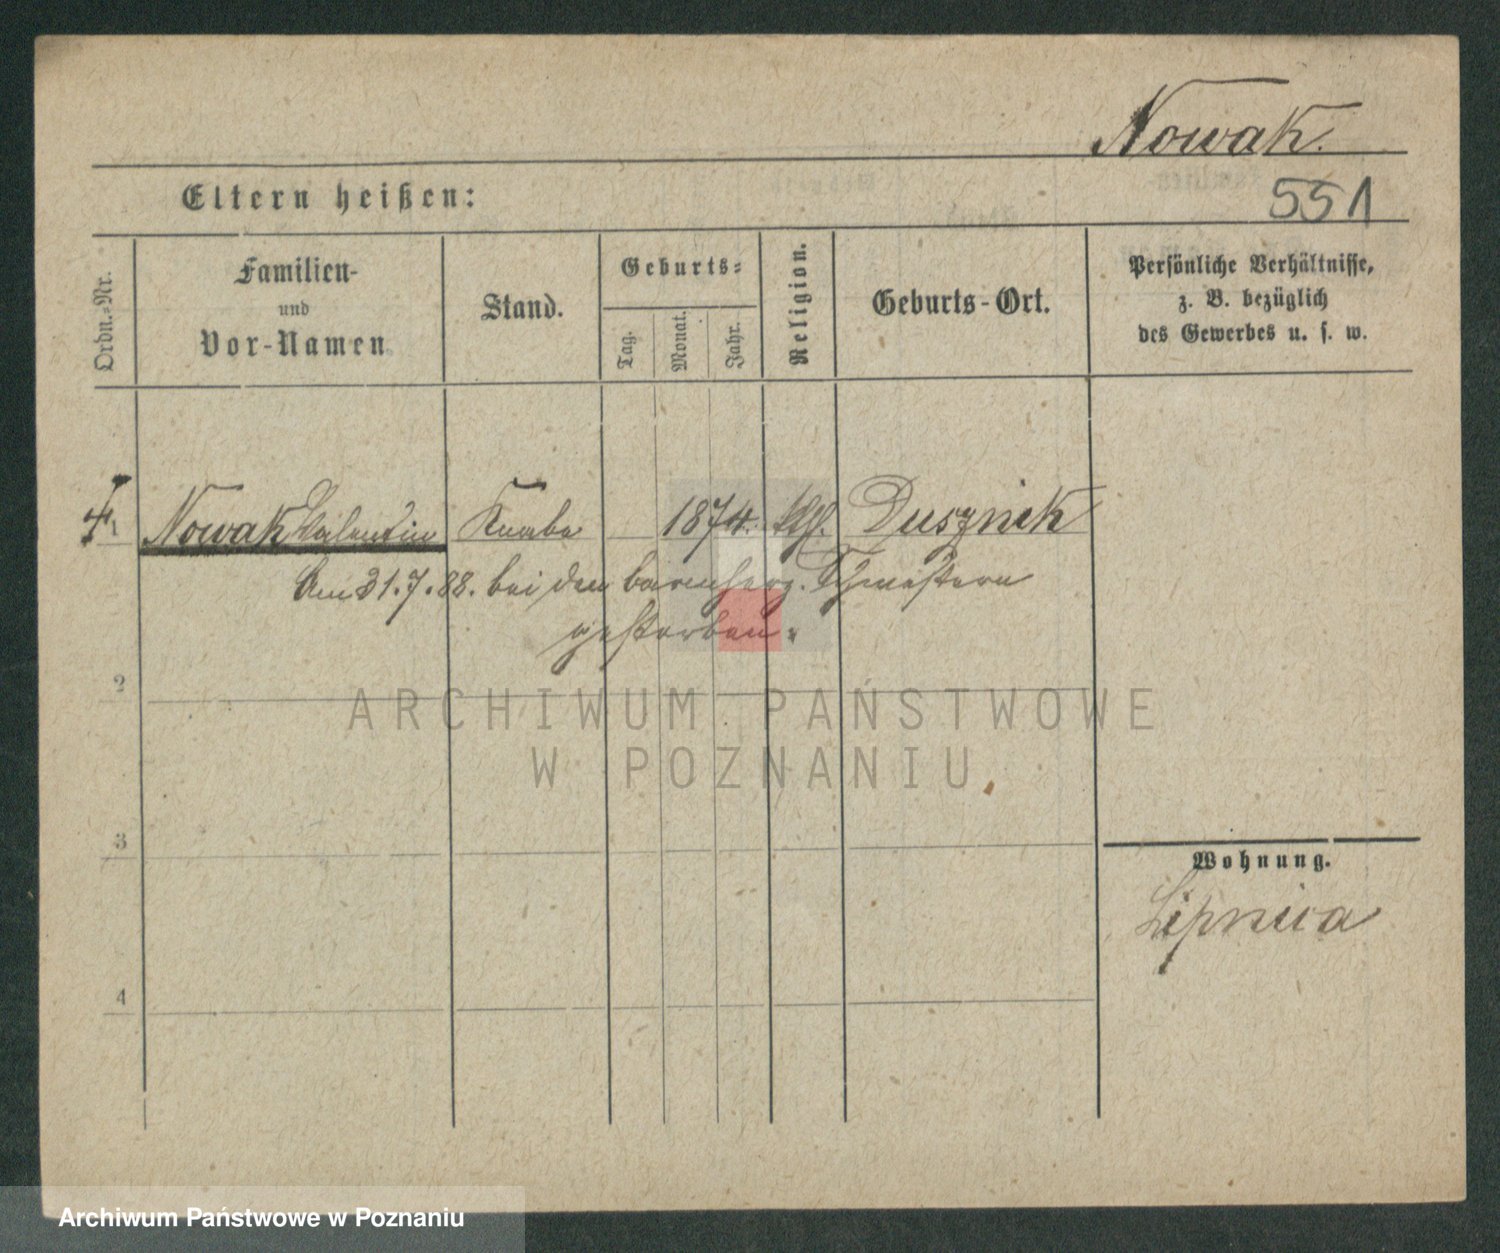 Nowak.
Eltern heißen:
551
Ordn.-Nr.
Familien-
und
Vor-Namen
Stand.
Geburts-
Tag.
Monat.
Jahr.
Religion.
Geburts-Ort.
Persönliche Verhältnisse,
z. B. bezüglich
des Gewerbes u. s. w.
1 Nowak Valentin Knabe 1874. kth. Dusznik
Am 31.7.88. bei den barmherz. Schwestern
gestorben.
2
ARCHIWUM PAŃSTWOWE
W POZNANIU
3
Wohnung.
Lipnica
4
Archiwum Państwowe w Poznaniu